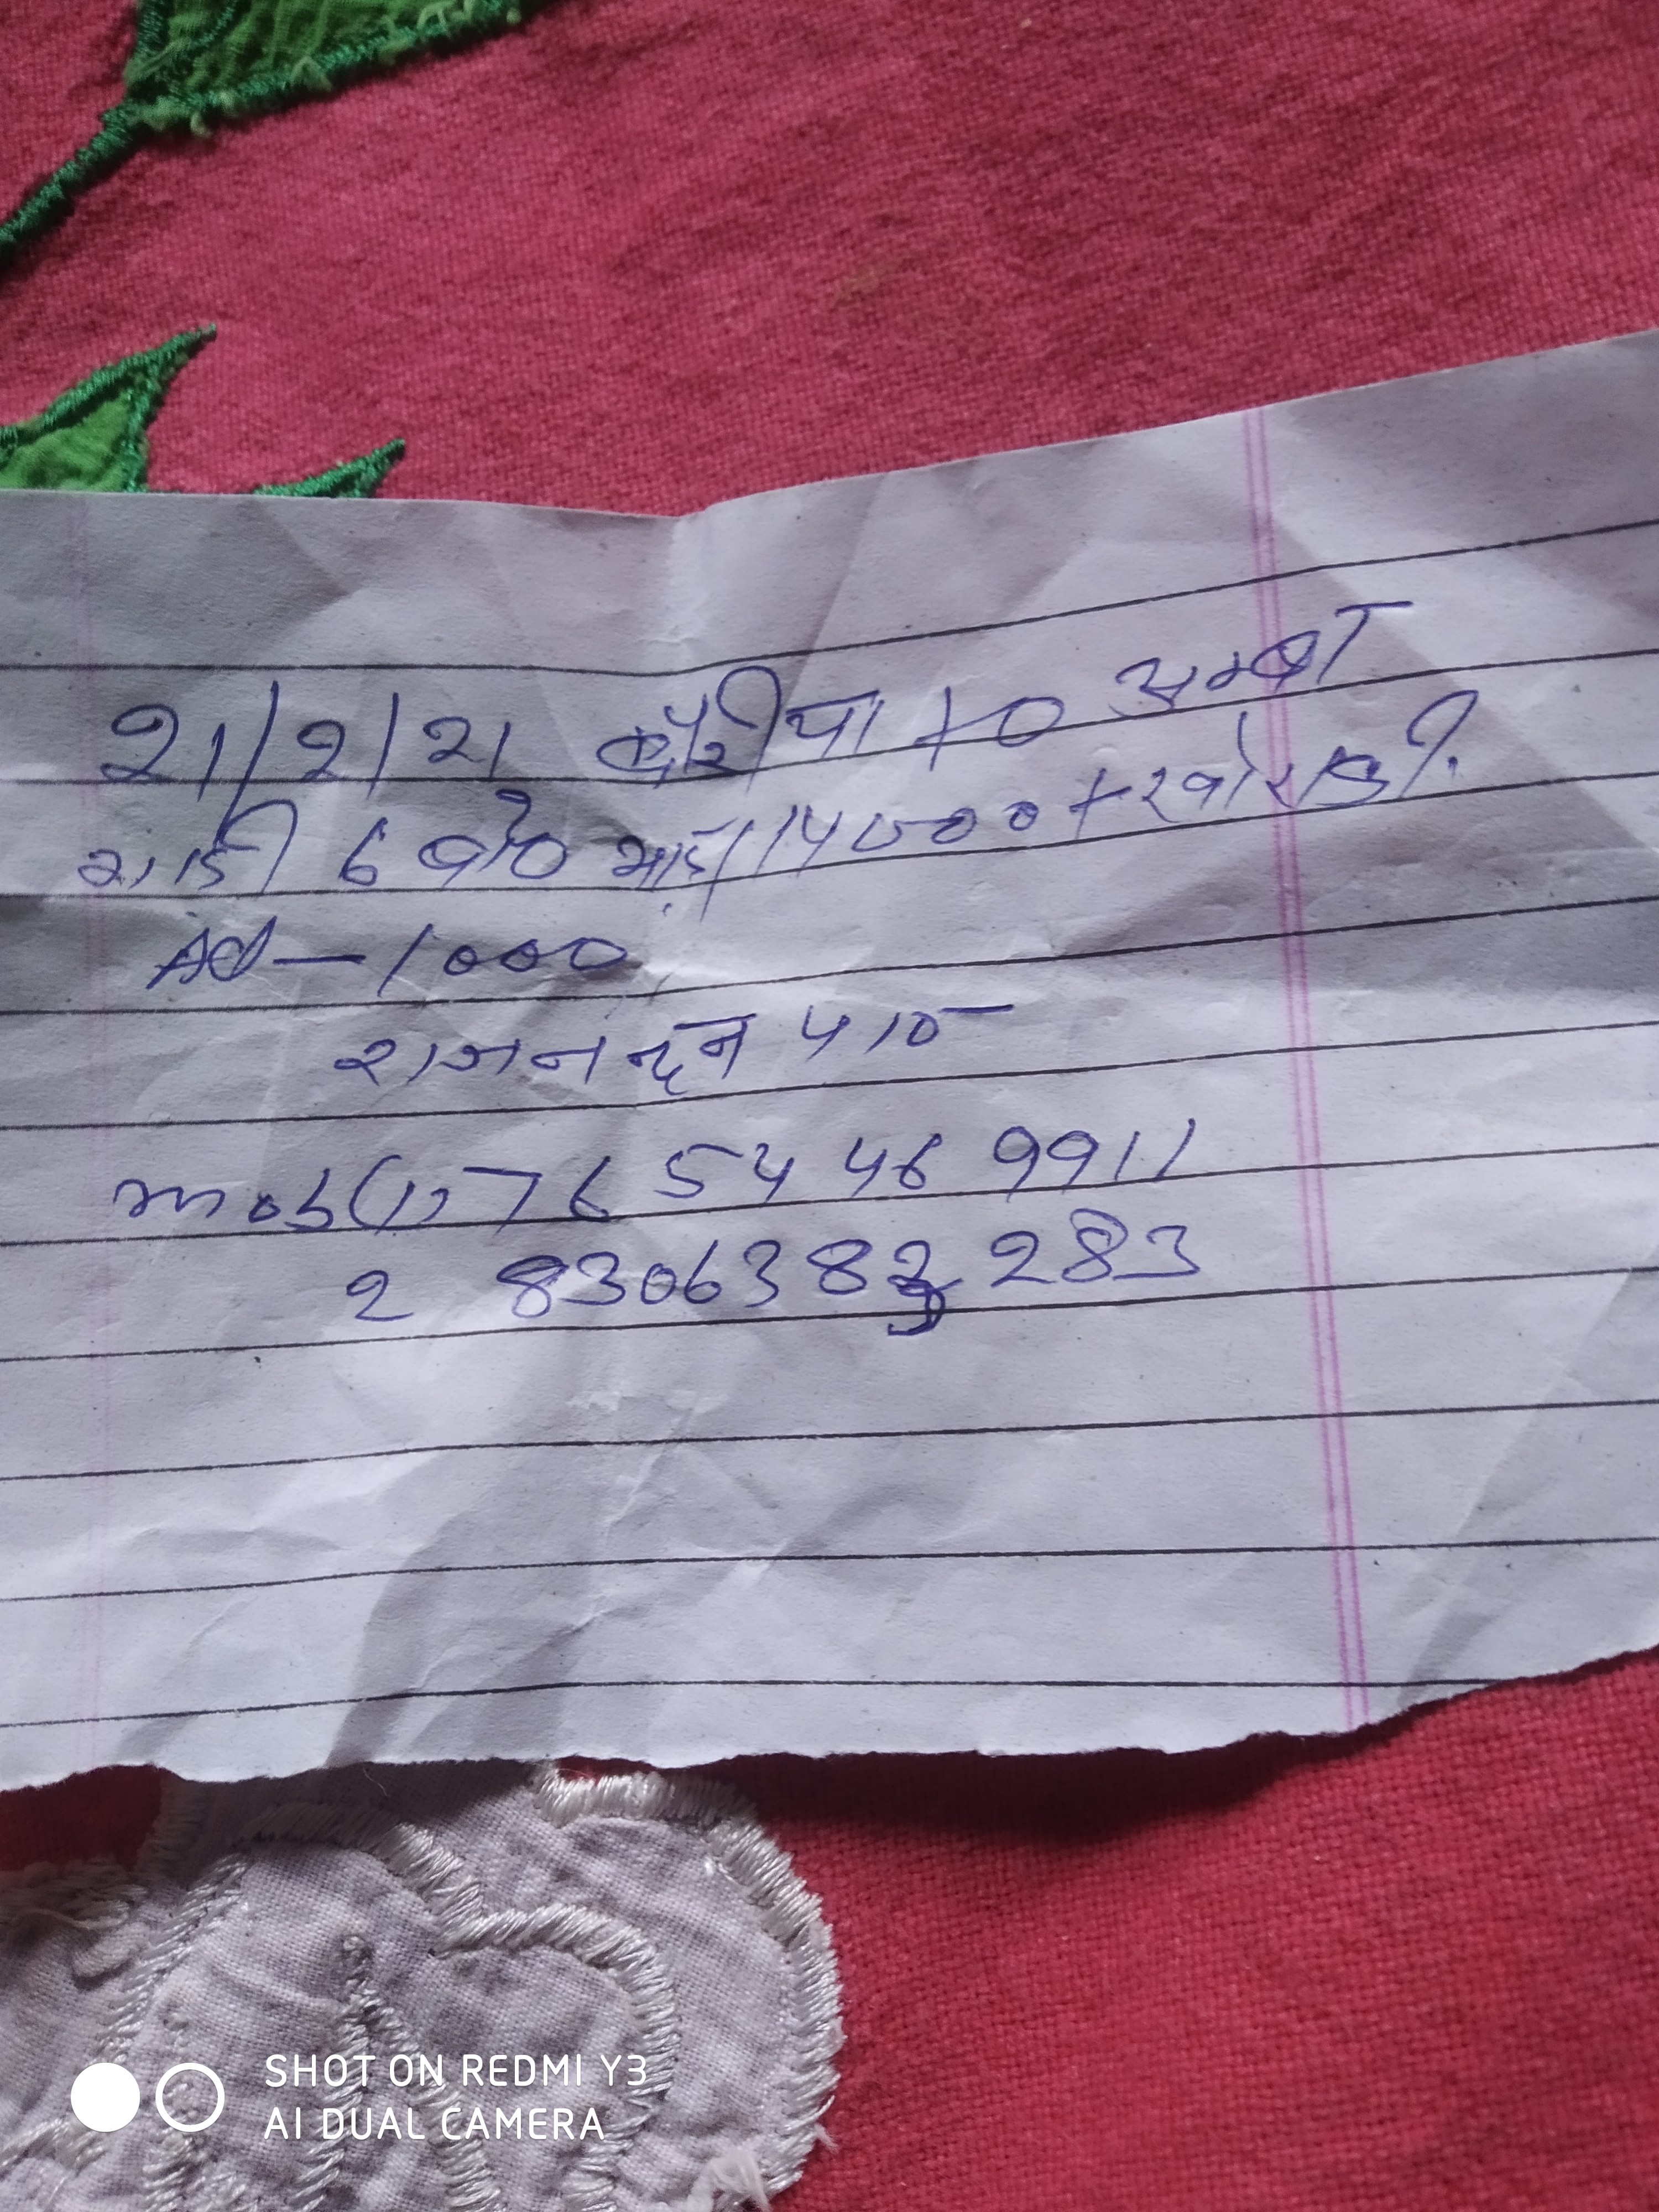 21/2/21
गाड़ी 6 भाड़ा 14000 + खोराकी.
Ad - 1000
राजनन्दन
mob (1) 76 54 46 9911
2 8306383283
SHOT ON REDMI Y3
AI DUAL CAMERA